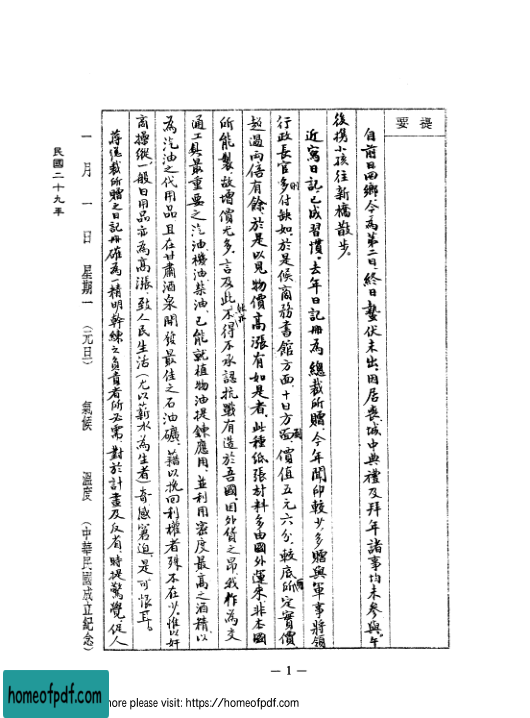 提要
自前日回鄉今為第二日終日蟄伏未出因居喪城中典禮及拜年諸事均未參與午
後携小孩往新橋散步。
近寫日記已成習慣去年日記冊為總裁所贈今年聞印較少多贈與軍事將領
行政長官多付缺如於是候商務書館方面十日方 價值五元六分較底所定實價
超過兩倍有餘於是以見物價高漲有如是者此種紙張封料多由國外運來非本國
所能製故增價尤多言及此 不得不承認抗戰有造於吾國因外貨之昂我 作為交
通工具最重要之汽油機油柴油已能就植物油提鍊應用並利用密度最高之酒精以
為汽油之代用品且在甘肅酒泉開發最佳之石油礦藉以挽回利權者殊不在少惟以奸
商操縱一般日用品亦為高漲致人民生活(尤以薪水為生者)奇感窘迫是可恨耳。
蔣總裁所贈之日記冊確為一精明幹練之負責者所必需對於計畫及反省時提驚覺促人
一月一日 星期一 (元旦) 氣候 溫度 (中華民國成立紀念)
民國二十九年
— 1 —
homeofpdf.com
ore please visit: https://homeofpdf.com